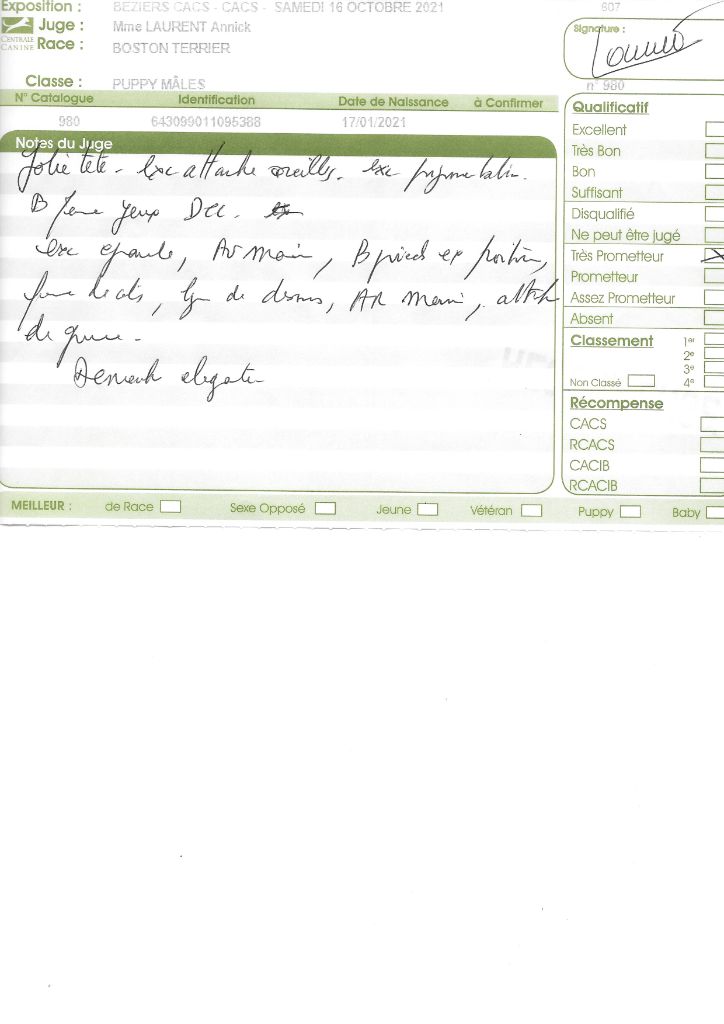 Exposition : BEZIERS CACS - CACS - SAMEDI 16 OCTOBRE 2021 807
CENTRALE CANINE
Juge : Mme LAURENT Annick
Race : BOSTON TERRIER
Signature :
Classe : PUPPY MÂLES n° 980
N° Catalogue Identification Date de Naissance à Confirmer
980 643099011095388 17/01/2021
Notes du Juge
Jolie tête - Exc attache oreilles. exc pigmentation.
B forme yeux Dec.
exc epaule, AV main, B pieds ex poitrine,
forme de cotes, lgn de dessus, AR main, attache
de queue.
Demarche elegante
Qualificatif
Excellent
Très Bon
Bon
Suffisant
Disqualifié
Ne peut être jugé
Très Prometteur
Prometteur
Assez Prometteur
Absent
Classement 1er
2e
3e
Non Classé 4e
Récompense
CACS
RCACS
CACIB
RCACIB
MEILLEUR : de Race Sexe Opposé Jeune Vétéran Puppy Baby